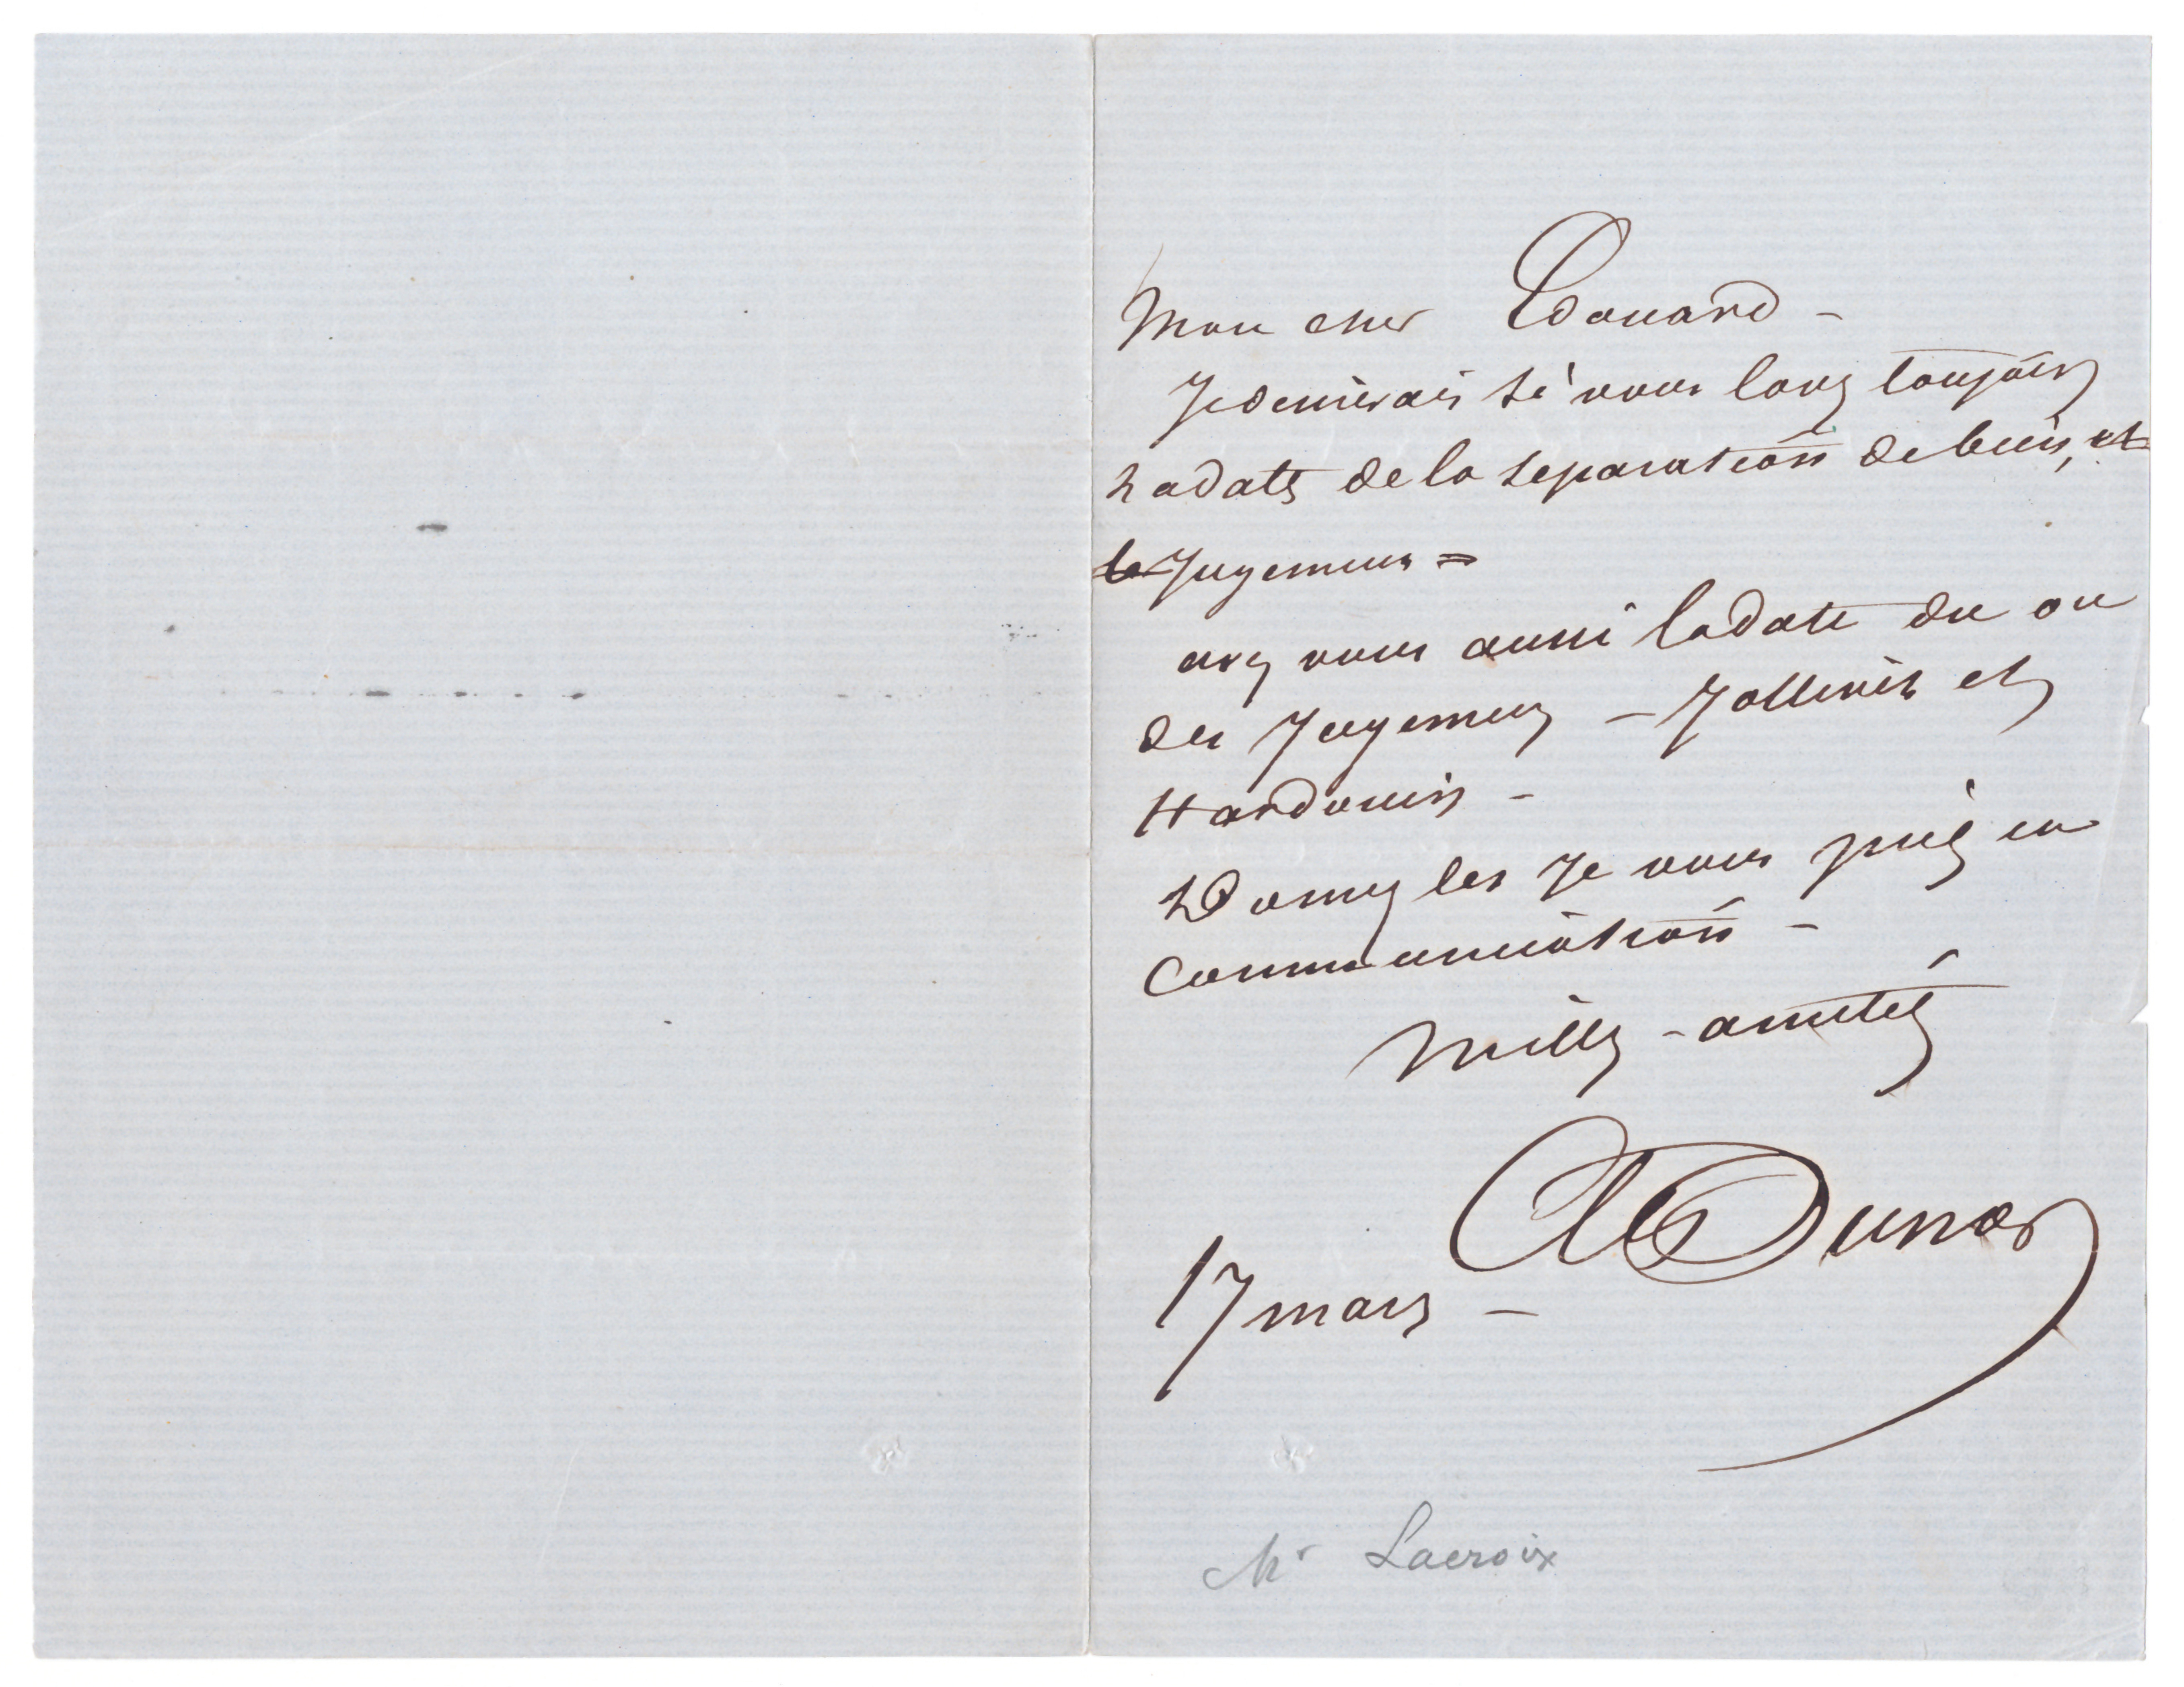 Mon cher Edouard –
Je desirerais si vous l'avez toujours
la date de la separation de biens, et
le Jugement =
avez vous aussi la date du ou
des Jugemens – Jollivet et
Hardouin –
Donnez les Je vous prie en
Communication –
Mille – amities
Al Dumas
17 mars –
Mr Lacroix